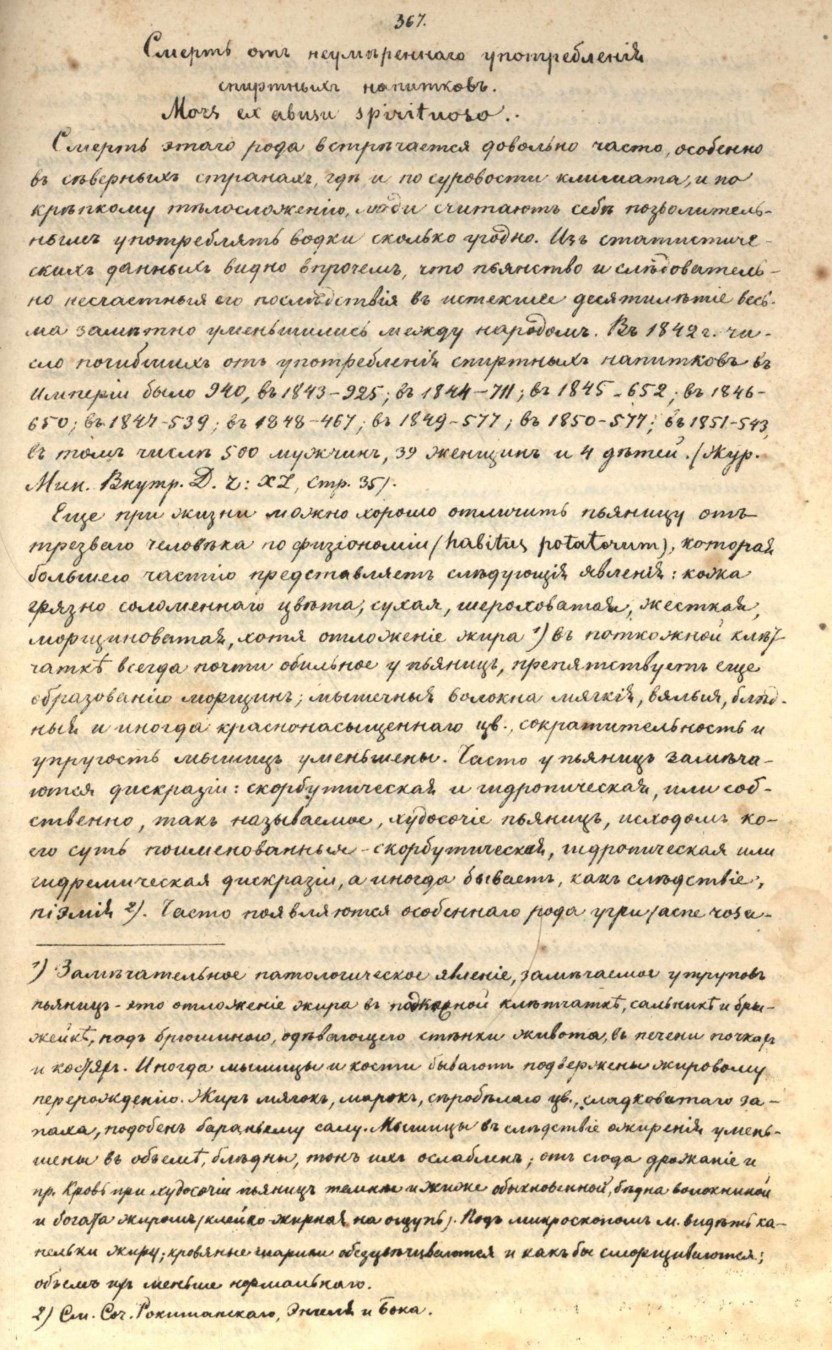 367.
Смерть отъ неумѣреннаго употребленія
спиртныхъ напитковъ.
Mors ex abusu spirituoso.
Смерть этаго рода встрѣчается довольно часто, особенно
въ сѣверныхъ странахъ, гдѣ и по суровости климата, и по
крѣпкому тѣлосложенію, люди считаютъ себѣ позволитель-
нымъ употреблять водки сколько угодно. Изъ статистиче-
скихъ данныхъ видно впрочемъ, что пьянство и слѣдователь-
но несчастныя его послѣдствія въ истекшее десятилѣтіе весь-
ма замѣтно уменьшились между народомъ. Въ 1842 г. чи-
сло погибшихъ отъ употребленія спиртныхъ напитковъ въ
Имперіи было 940, въ 1843-925; въ 1844-711; въ 1845-652; въ 1846-
650; въ 1847-539; въ 1848-467; въ 1849-577; въ 1850-577; въ 1851-543,
въ томъ числѣ 500 мужчинъ, 39 женщинъ и 4 дѣтей. (Жур.
Мин. Внутр. Д. ч: XL, стр. 35).
Еще при жизни можно хорошо отличить пьяницу отъ
трезваго человѣка по физіономіи (habitus potatorum), которая
большею частію представляетъ слѣдующія явленія: кожа
грязно соломеннаго цвѣта, сухая, шероховатая, жесткая,
морщиноватая, хотя отложеніе жира ¹) въ поткожной клѣт-
чаткѣ всегда почти обильное у пьяницъ, препятствуетъ еще
образованію морщинъ; мышечныя волокна мягкія, вялыя, блѣд-
ныя и иногда краснонасыщеннаго цв., сократительность и
упругость мышицъ уменьшены. Часто у пьяницъ замѣча-
ются дискразіи: скорбутическая и гидропическая, или соб-
ственно, такъ называемое, худосочіе пьяницъ, исходомъ ко-
его суть поименованныя - скорбутическая, гидропическая или
гидремическая дискразіи, а иногда бываетъ, какъ слѣдствіе,
піэмія ²). Часто появляются особеннаго рода угри (acne rosa-
¹) Замѣчательное патологическое явленіе, замѣчаемое у труповъ
пьяницъ - это отложеніе жира въ подкожной клѣтчаткѣ, сальникѣ и бры-
жейкѣ, подъ брюшиною, одѣвающего стѣнки живота, въ печени почкахъ
и костяхъ. Иногда мышицы и кости бываютъ подвержены жировому
перерожденію. Жиръ мягокъ, марокъ, серобѣлаго цв., сладковатаго за-
паха, подобенъ бараньему салу. Мышицы въ слѣдствіе ожиренія умень-
шены въ объемѣ, блѣдны, тонъ ихъ ослабленъ; отъ сюда дрожаніе и
пр. Кровь при худосочіи пьяницъ темнѣе и жиже обыкновенной, бѣдна волокниной
и богата жиромъ (клейко-жирная на ощупь). Подъ микроскопомъ м. видѣть ка-
пельки жиру; кровяные шарики обезцвѣчиваются и какъ бы сморщиваются;
объемъ ихъ меньше нормальнаго.
2) См. Соч. Рокитанскаго, Энгеля и Бока.